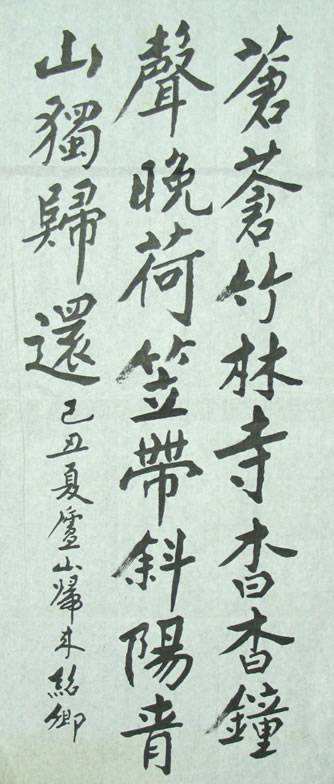 蒼蒼竹林寺杳杳鐘
聲晚荷笠帶斜陽青
山獨歸還
己丑夏廬山歸来紹卿